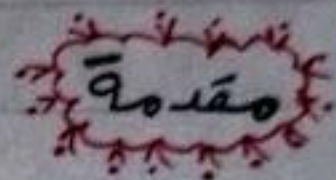 مقدمة